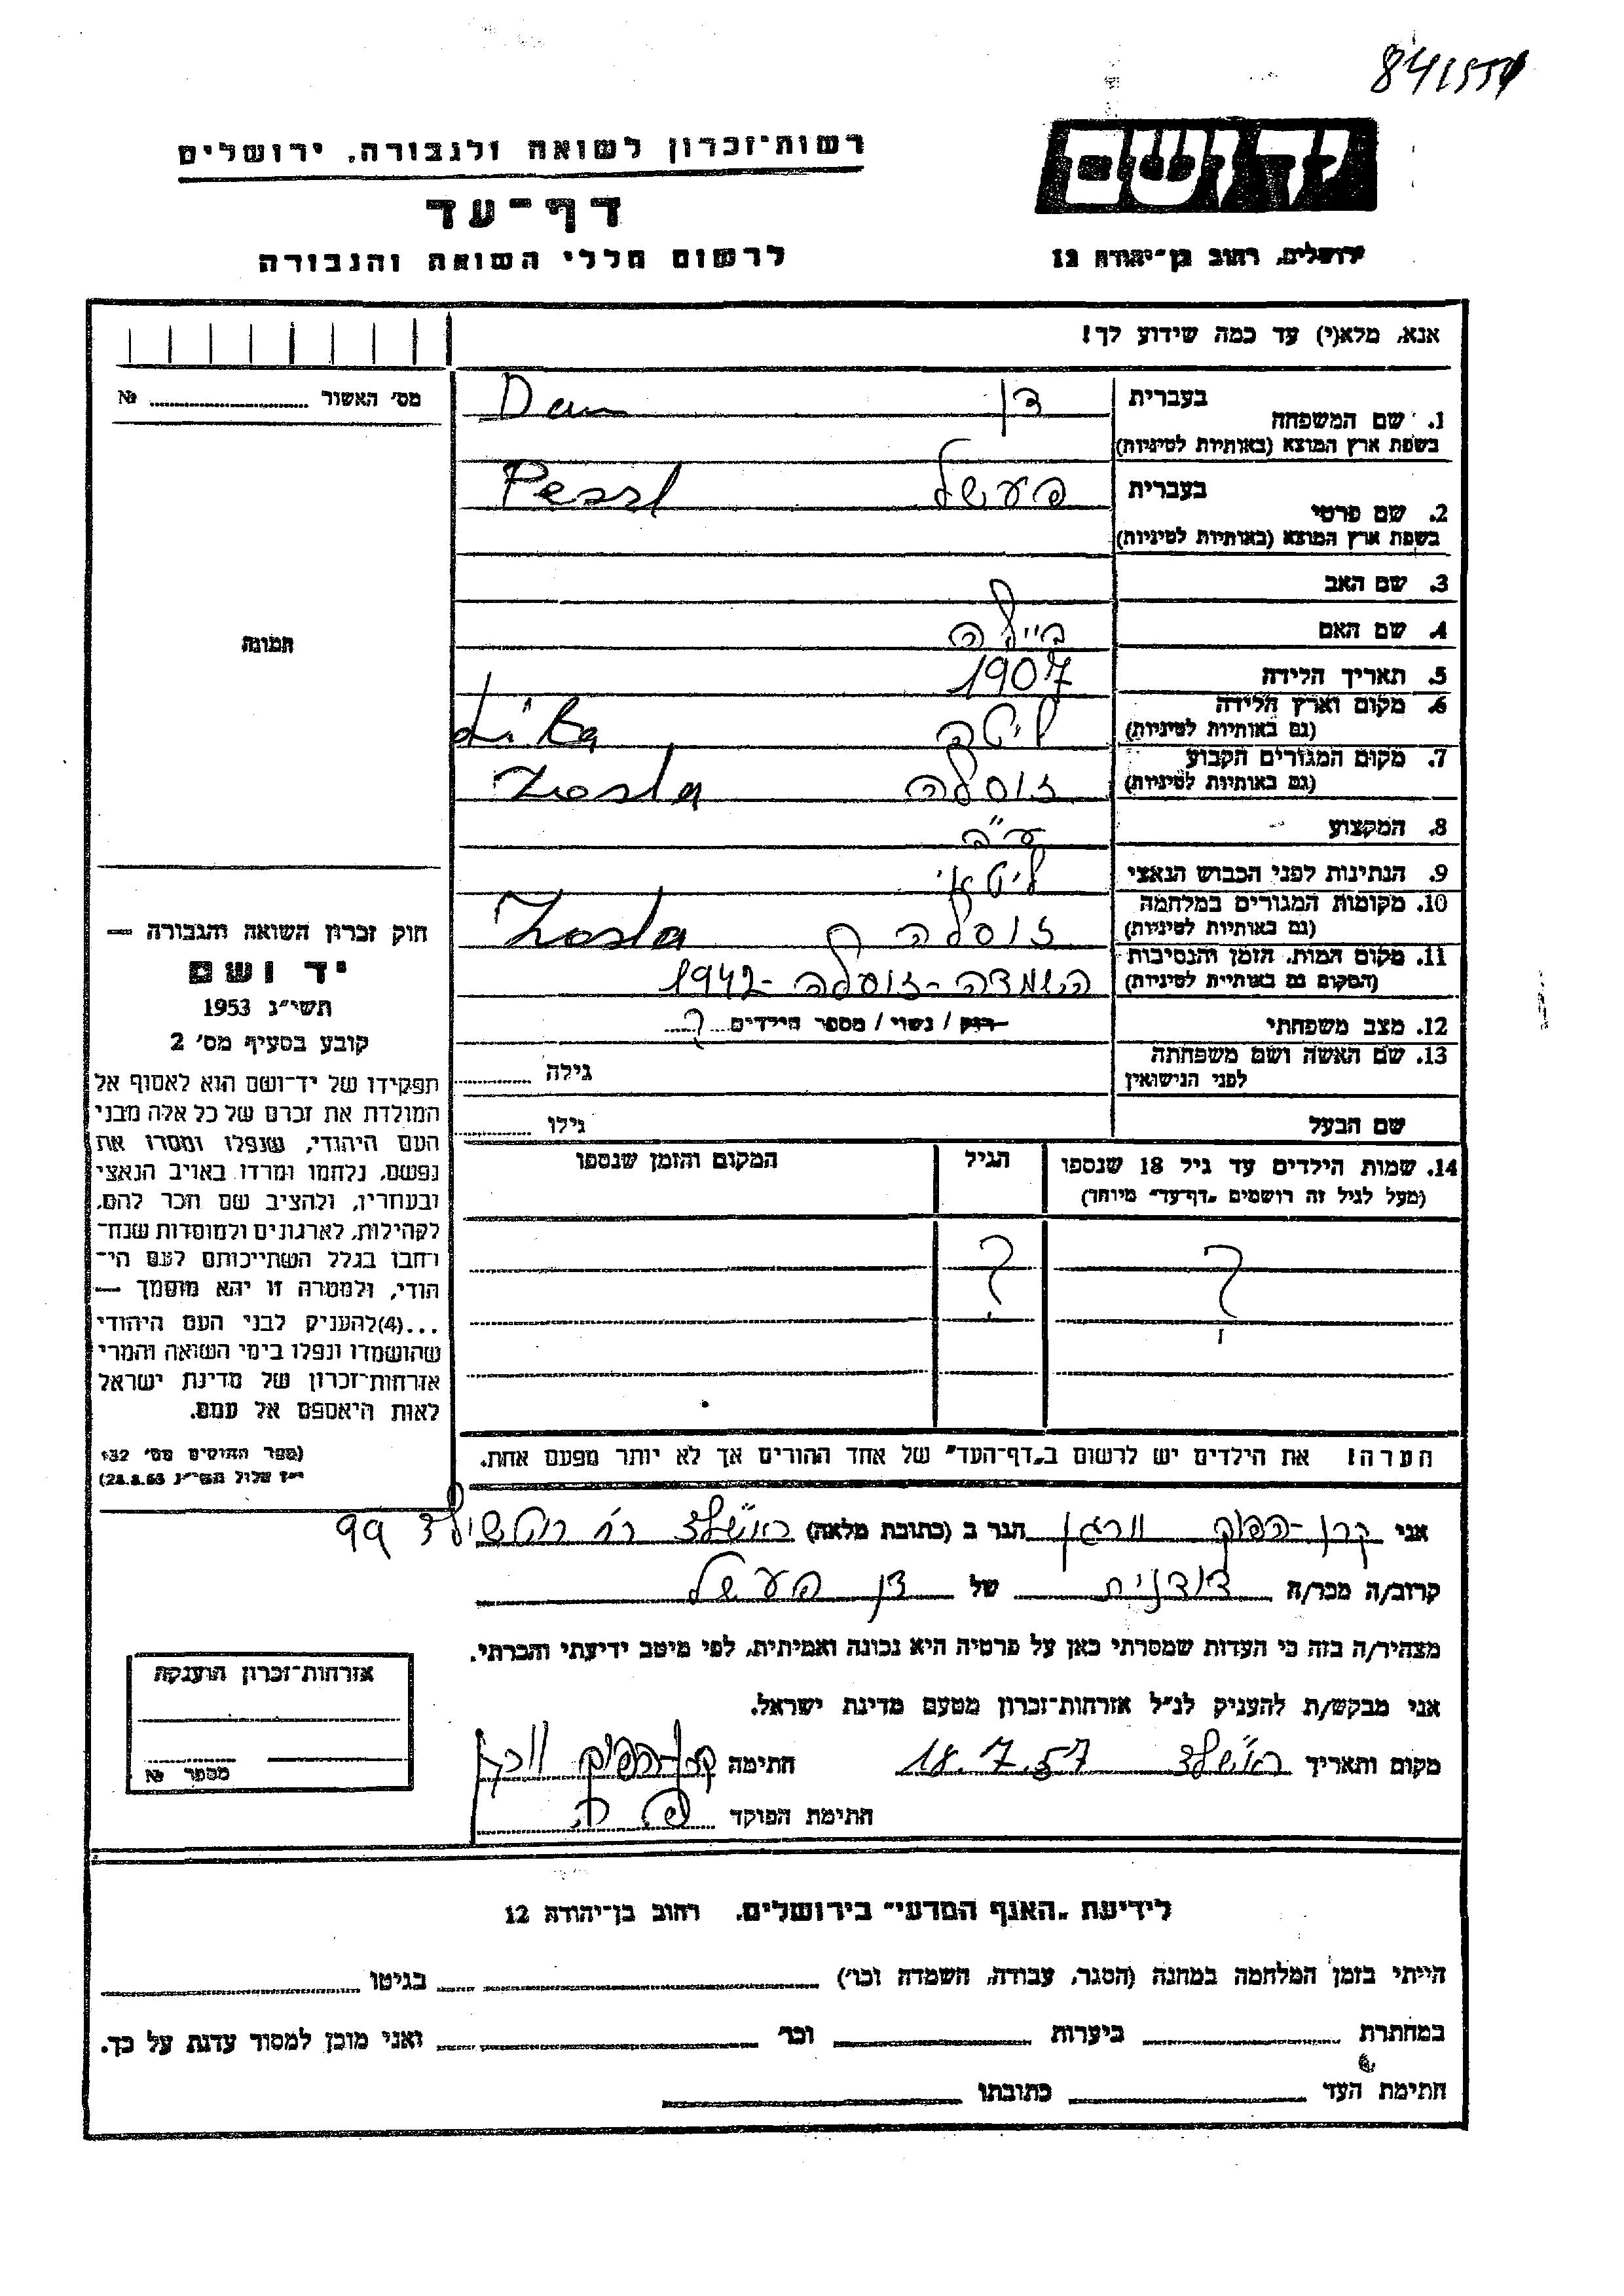 841551
יד ושם
ירושלים, רחוב בן־יהודה 12
רשות־זכרון לשואה ולגבורה, ירושלים
דף־עד
לרשום חללי השואה והגבורה
אנא, מלא(י) עד כמה שידוע לך!
מס' האשור № 
1. שם המשפחה
בעברית דן Dan
בשפת ארץ המוצא (באותיות לטיניות)
2. שם פרטי
בעברית פעשל Pessl
בשפת ארץ המוצא (באותיות לטיניות)
3. שם האב
4. שם האם ביילה
5. תאריך הלידה 1907
6. מקום וארץ הלידה ליטה
(גם באותיות לטיניות)
7. מקום המגורים הקבוע זוסלה Zosla
(גם באותיות לטיניות)
8. המקצוע עב"ה
9. הנתינות לפני הכבוש הנאצי ליטאי
10. מקומות המגורים במלחמה זוסלה Zosla
(גם באותיות לטיניות)
11. מקום המות, הזמן והנסיבות השמדה - זוסלה - 1942
(המקום גם באותיות לטיניות)
12. מצב משפחתי רווק / נשוי / מספר הילדים ?
13. שם האשה ושם משפחתה
לפני הנישואין
גילה
שם הבעל גילו
14. שמות הילדים עד גיל 18 שנספו
(מעל לגיל זה רושמים "דף־עד" מיוחד)
הגיל
המקום והזמן שנספו
? ?
הערה! את הילדים יש לרשום ב"דף־העד" של אחד ההורים אך לא יותר מפעם אחת.
תמונה
חוק זכרון השואה והגבורה —
יד ושם
תשי"ג 1953
קובע בסעיף מס' 2
תפקידו של יד־ושם הוא לאסוף אל
המולדת את זכרם של כל אלה מבני
העם היהודי, שנפלו ומסרו את
נפשם, נלחמו ומרדו באויב הנאצי
ובעוזריו, ולהציב שם וזכר להם,
לקהילות, לארגונים ולמוסדות שנח־
רבו בגלל השתייכותם לעם הי־
הודי, ולמטרה זו יהא מוסמך —
...(4)להעניק לבני העם היהודי
שהושמדו ונפלו בימי השואה והמרי
אזרחות־זכרון של מדינת ישראל
לאות היאספם אל עמם.
(ספר החוקים מס' 132
י"ז אלול תשי"ג 28.8.53)
אני הגר ב (כתובת מלאה) ראשל"צ רח' רוטשילד 99
קרוב/ה מכר/ה דודנית של דן פעשל
מצהיר/ה בזה כי העדות שמסרתי כאן על פרטיה היא נכונה ואמיתית, לפי מיטב ידיעתי והכרתי.
אני מבקש/ת להעניק לנ"ל אזרחות־זכרון מטעם מדינת ישראל.
מקום ותאריך ראשל"צ 18.7.57 חתימה
חתימת הפוקד
אזרחות־זכרון הוענקה
מספר №
לידיעת "האגף המדעי" בירושלים, רחוב בן־יהודה 12
הייתי בזמן המלחמה במחנה (הסגר, עבודה, השמדה וכו') בגיטו
במחתרת ביערות וכו' ואני מוכן למסור עדות על כך.
חתימת העד כתובתו